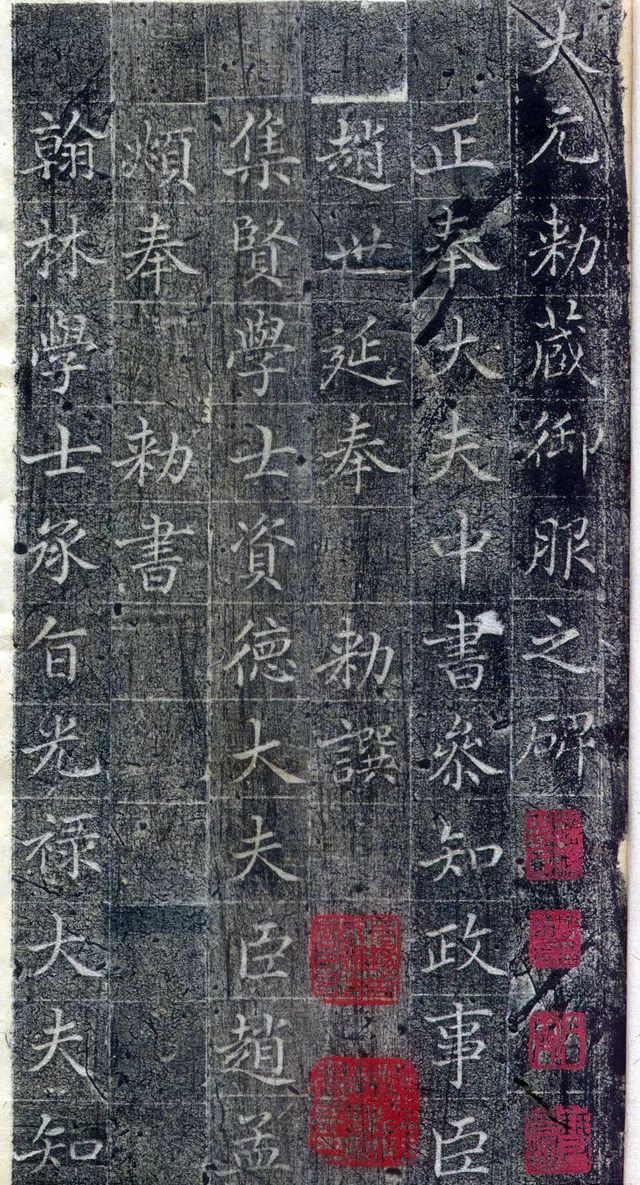 大元勑藏御服之碑
正奉大夫中書叅知政事臣
趙世延奉勑譔
集賢學士資德大夫臣趙孟
頫奉勑書
翰林學士承旨光禄大夫知